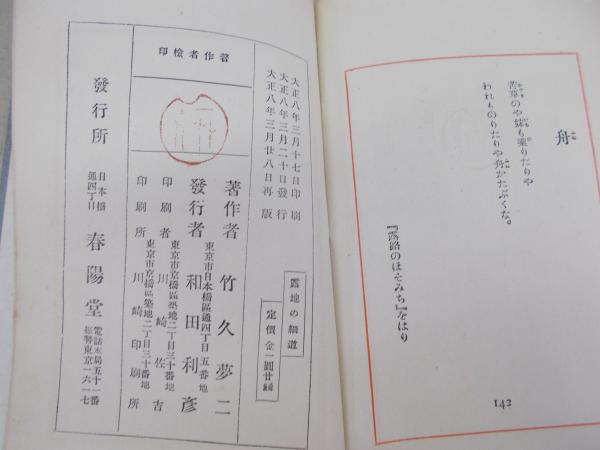 舟
われものりたりや舟かたぶくな。
『露路のほそみち』をはり
142
露地の細道
定價金一圓廿錢
大正八年三月十七日印刷
大正八年三月二十日發行
大正八年三月廿八日再版
著作者檢印
著作者 竹久夢二
東京市日本橋區通四丁目五番地
發行者 和田利彥
東京市京橋區築地二丁目三十番地
印刷者 川崎佐吉
東京市京橋區築地二丁目三十番地
印刷所 川崎印刷所
發行所 日本橋通四丁目 春陽堂
電話本局五十一番
振替東京一六一七